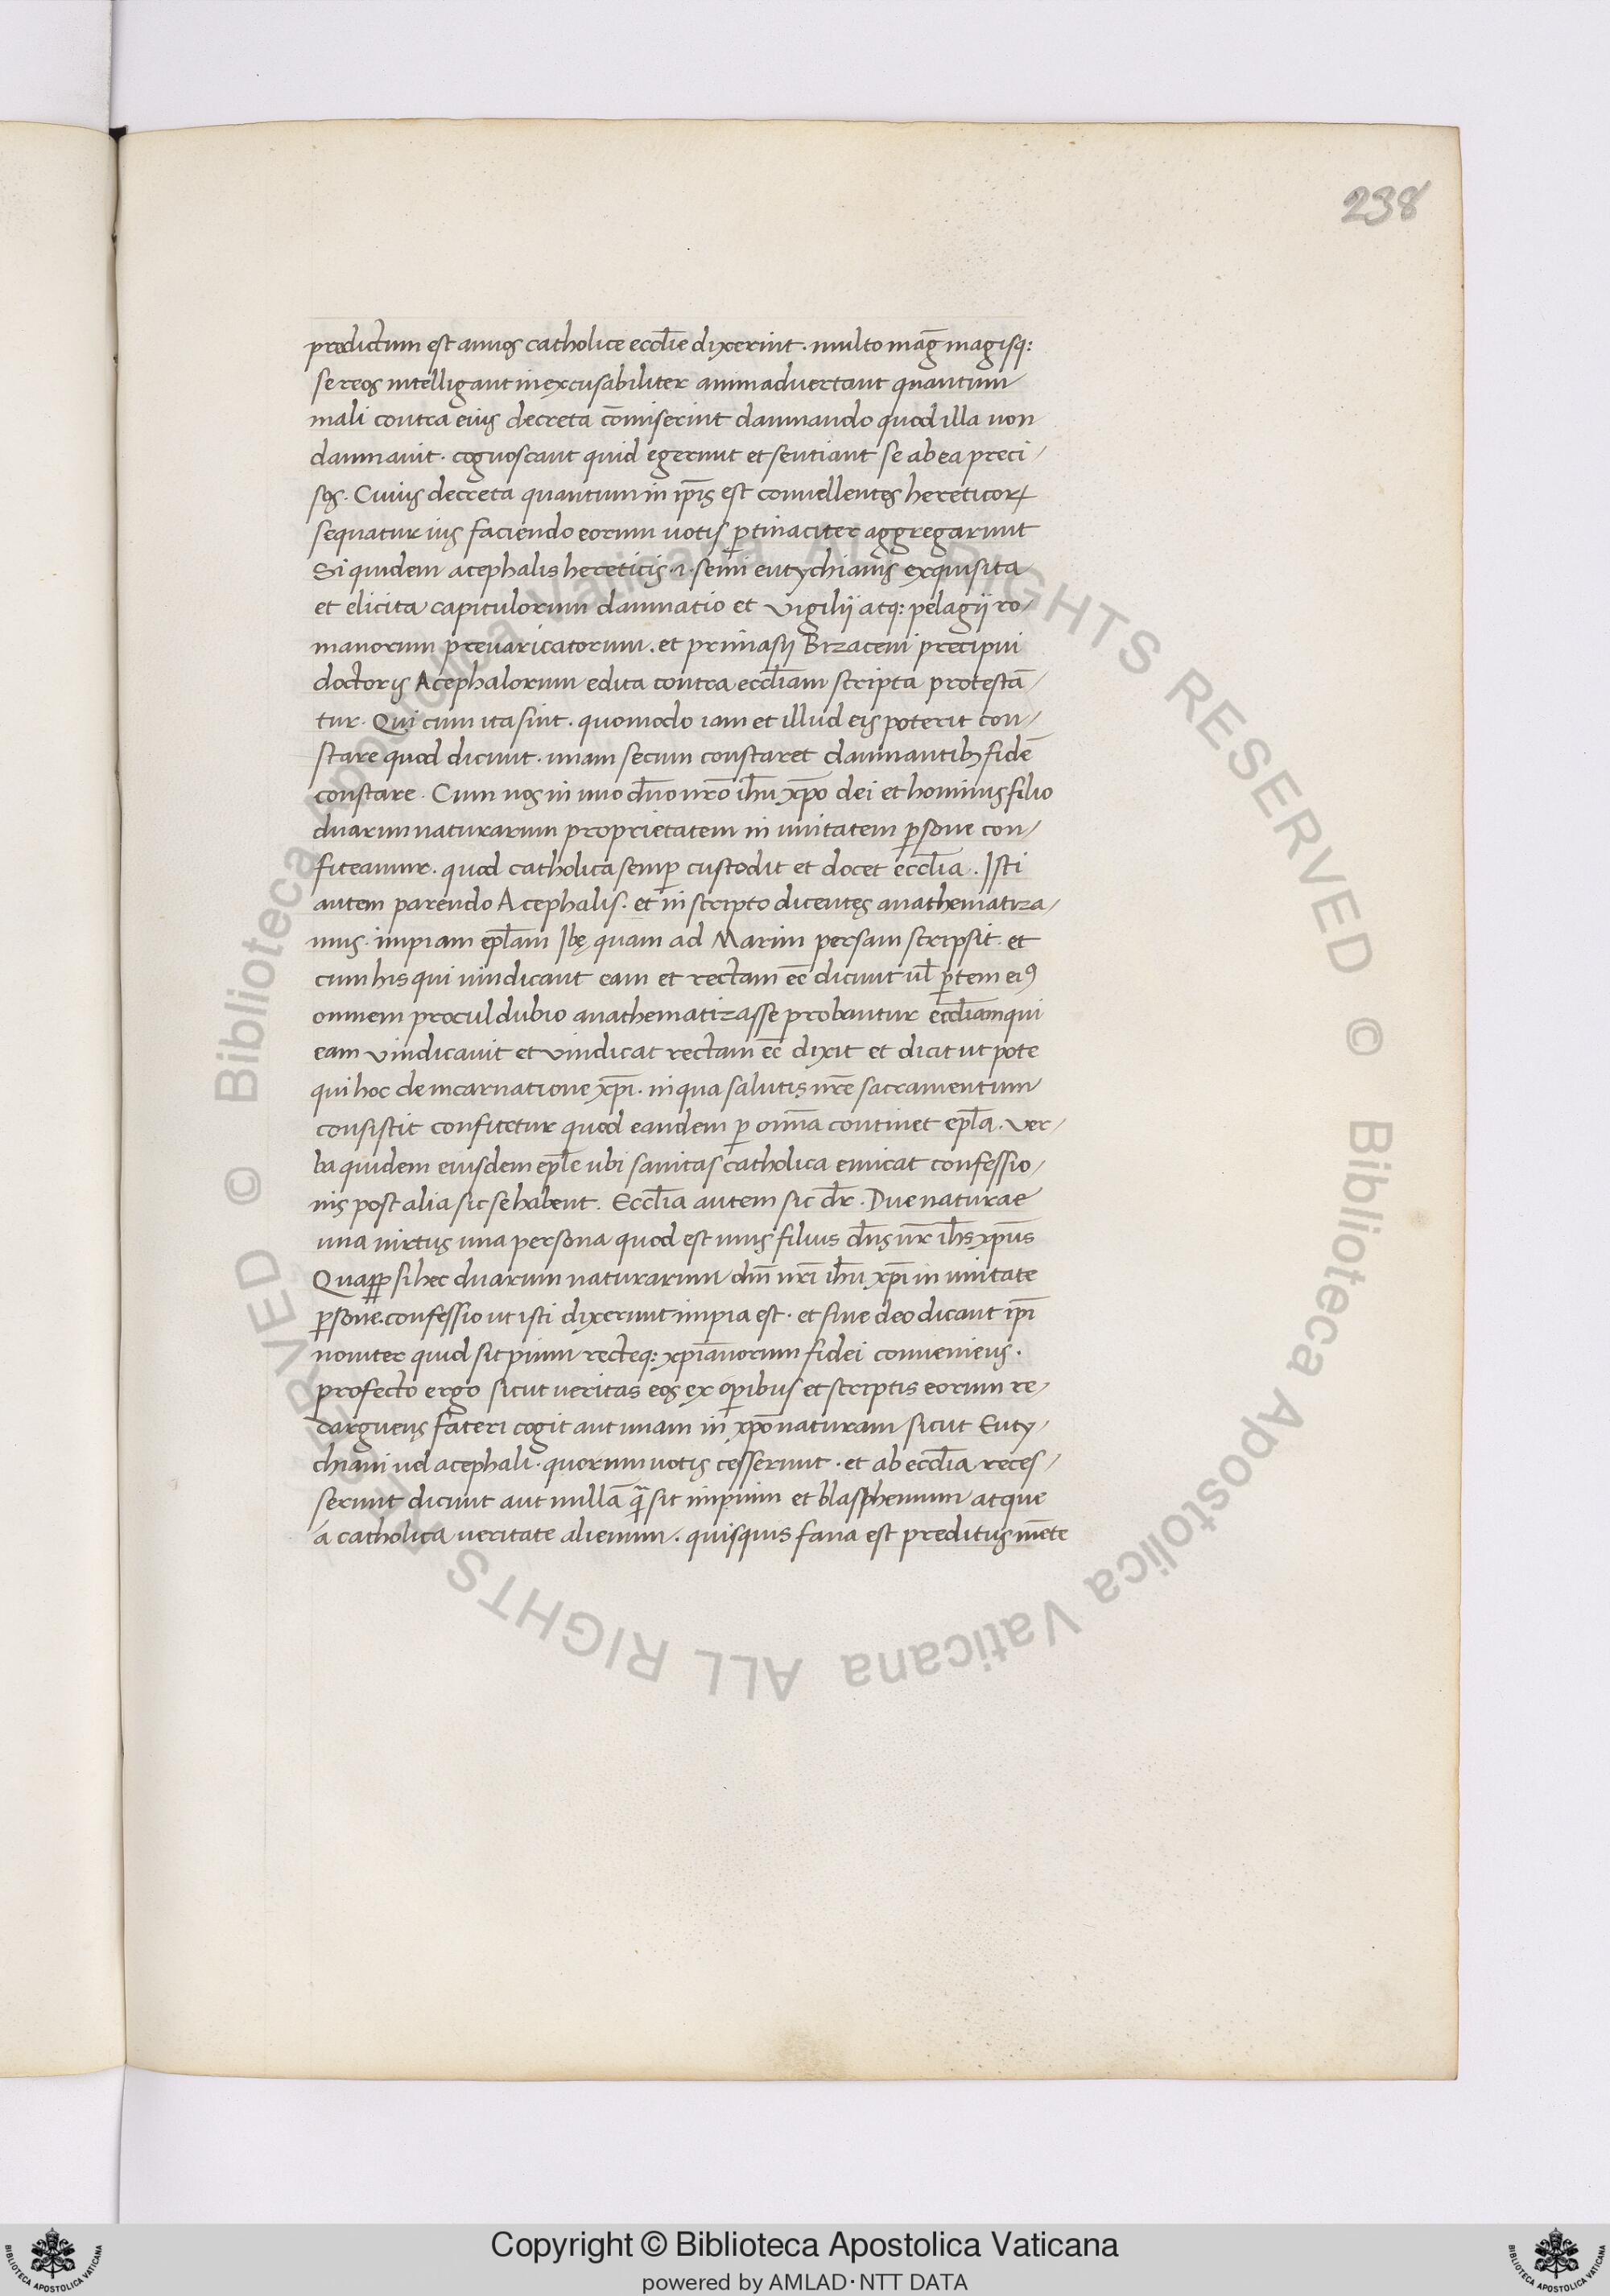 238
predictum est annos catholice eccl̄ie dixerint. multo mag̅ magisq:
se reos intelligant inexcusabiliter animadvertant quantum
mali contra eius decreta cōmiserint damnando quod illa non
damnavit. cognoscant quid egerunt et sentiant se ab ea preci/
sos. Cuius decreta quantum in ip̄is est convellentes hereticoꝝ
sequatur ius faciendo eorum votis ꝑtinaciter aggregarunt
Siquidem acephalis hereticis .i. semi eutychianis exquisita
et elicita capitulorum damnatio et Vigilij atq: pelagij ro/
manorum prevaricatorum. et primasij Bizaceni precipui
doctoris Acephalorum edita contra eccl̄iam scripta protestā/
tur. Qui cum ita sint. quomodo iam et illud eis poterit con/
stare quod dicunt. unam secum constaret damnantibꝫ fidē
constare. Cum nos in uno dn̄o nr̄o ih̄u xp̄o dei et hominis filio
duarum naturarum proprietatem in unitatem ꝑsone con/
fiteamur. quod catholica semꝑ custodit et docet eccl̄ia. Isti
autem parendo Acephalis. et in scripto dicentes anathematiza/
mus. impiam epl̄am Ibę quam ad Marim persam scripsit. et
cum his qui vindicant eam et rectam eē dicunt ul̄ ꝑtem eiꝰ
omnem procul dubio anathematizasse probantur eccl̄iam qui
eam vindicavit et vindicat rectam eē dixit et dicit ut pote
qui hoc de incarnatione xp̄i. in qua salutis nr̄e sacramentum
consistit confitetur quod eandem ꝑ omn̄a continet epl̄a. Ver/
ba quidem eiusdem epl̄e ubi sanitas catholica emicat confessio/
nis post alia sic se habent. Eccl̄ia autem sic dr̄. Due naturae
una virtus una persona quod est unus filius dn̄s nr̄ ih̄s xp̄us
Quaꝓꝑ si hec duarum naturarum dn̄i nr̄i ih̄u xp̄i in unitate
ꝑsone. confessio ut isti dixerunt impia est. et sine deo dicant ip̄i
noviter quid sit pium recteq: xp̄ianorum fidei conveniens.
profecto ergo sicut veritas eos ex oꝑibus et scriptis eorum re/
darguens fateri cogit aut unam in xp̄o naturam sicut Euty/
chiani vel acephali. quorum votis cesserunt. et ab eccl̄ia reces/
serunt dicunt aut nullā q̄ sit impium et blasphemum atque
a catholica veritate alienum. quisquis sana est preditus mēte
© Biblioteca Apostolica Vaticana ALL RIGHTS RESERVED © Biblioteca Apostolica Vaticana ALL RIGHTS RESERVED
Copyright © Biblioteca Apostolica Vaticana
powered by AMLAD·NTT DATA
BIBLIOTECA APOSTOLICA VATICANA
BIBLIOTECA APOSTOLICA VATICANA